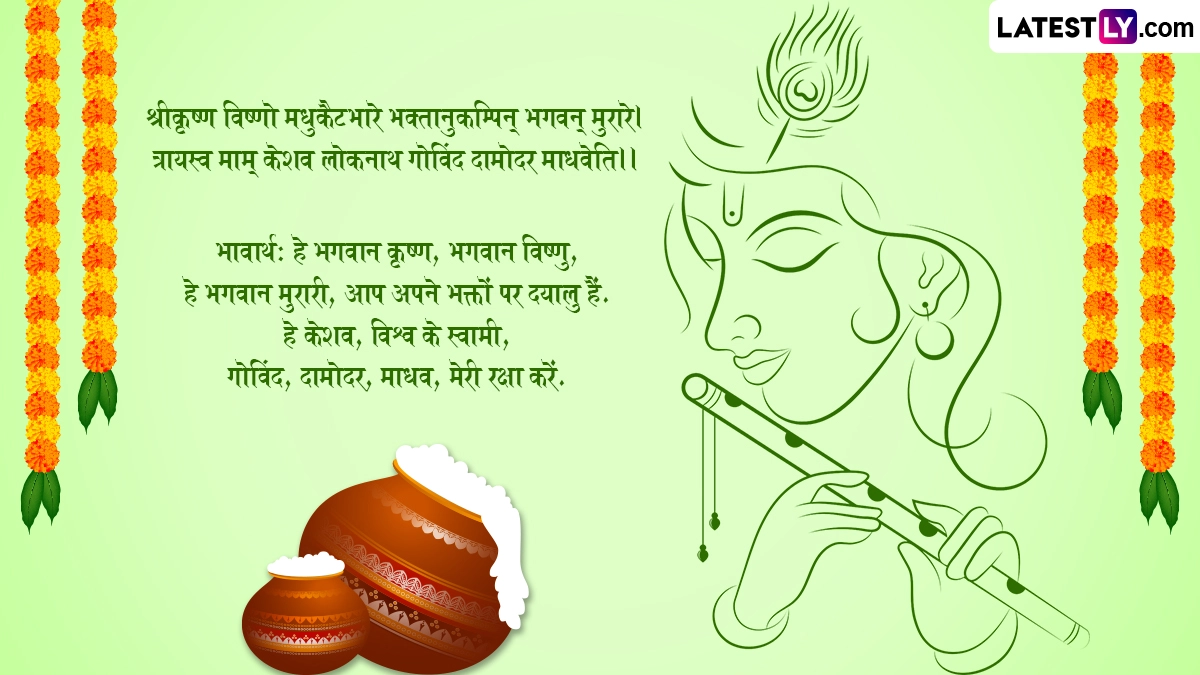 LATESTLY.com
श्रीकृष्ण विष्णो मधुकैटभारे भक्तानुकम्पिन् भगवन् मुरारे।
त्रायस्व माम् केशव लोकनाथ गोविंद दामोदर माधवेति।।
भावार्थ: हे भगवान कृष्ण, भगवान विष्णु,
हे भगवान मुरारी, आप अपने भक्तों पर दयालु हैं.
हे केशव, विश्व के स्वामी,
गोविंद, दामोदर, माधव, मेरी रक्षा करें.